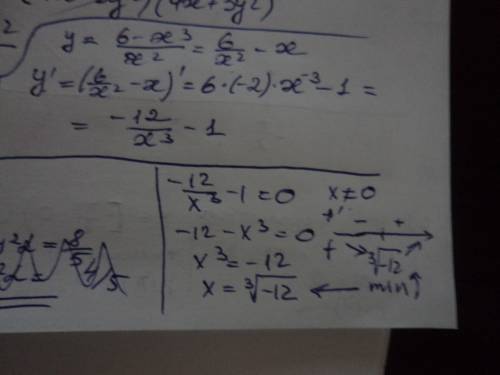 (4x+3y²)
y = (6-x³)/x² = 6/x² - x
y' = (6/x² - x)' = 6·(-2)·x⁻³ - 1 =
= -12/x³ - 1
-12/x³ - 1 = 0 x≠0
-12 - x³ = 0
x³ = -12
x = ³√-12
f' - +
f ³√-12
min